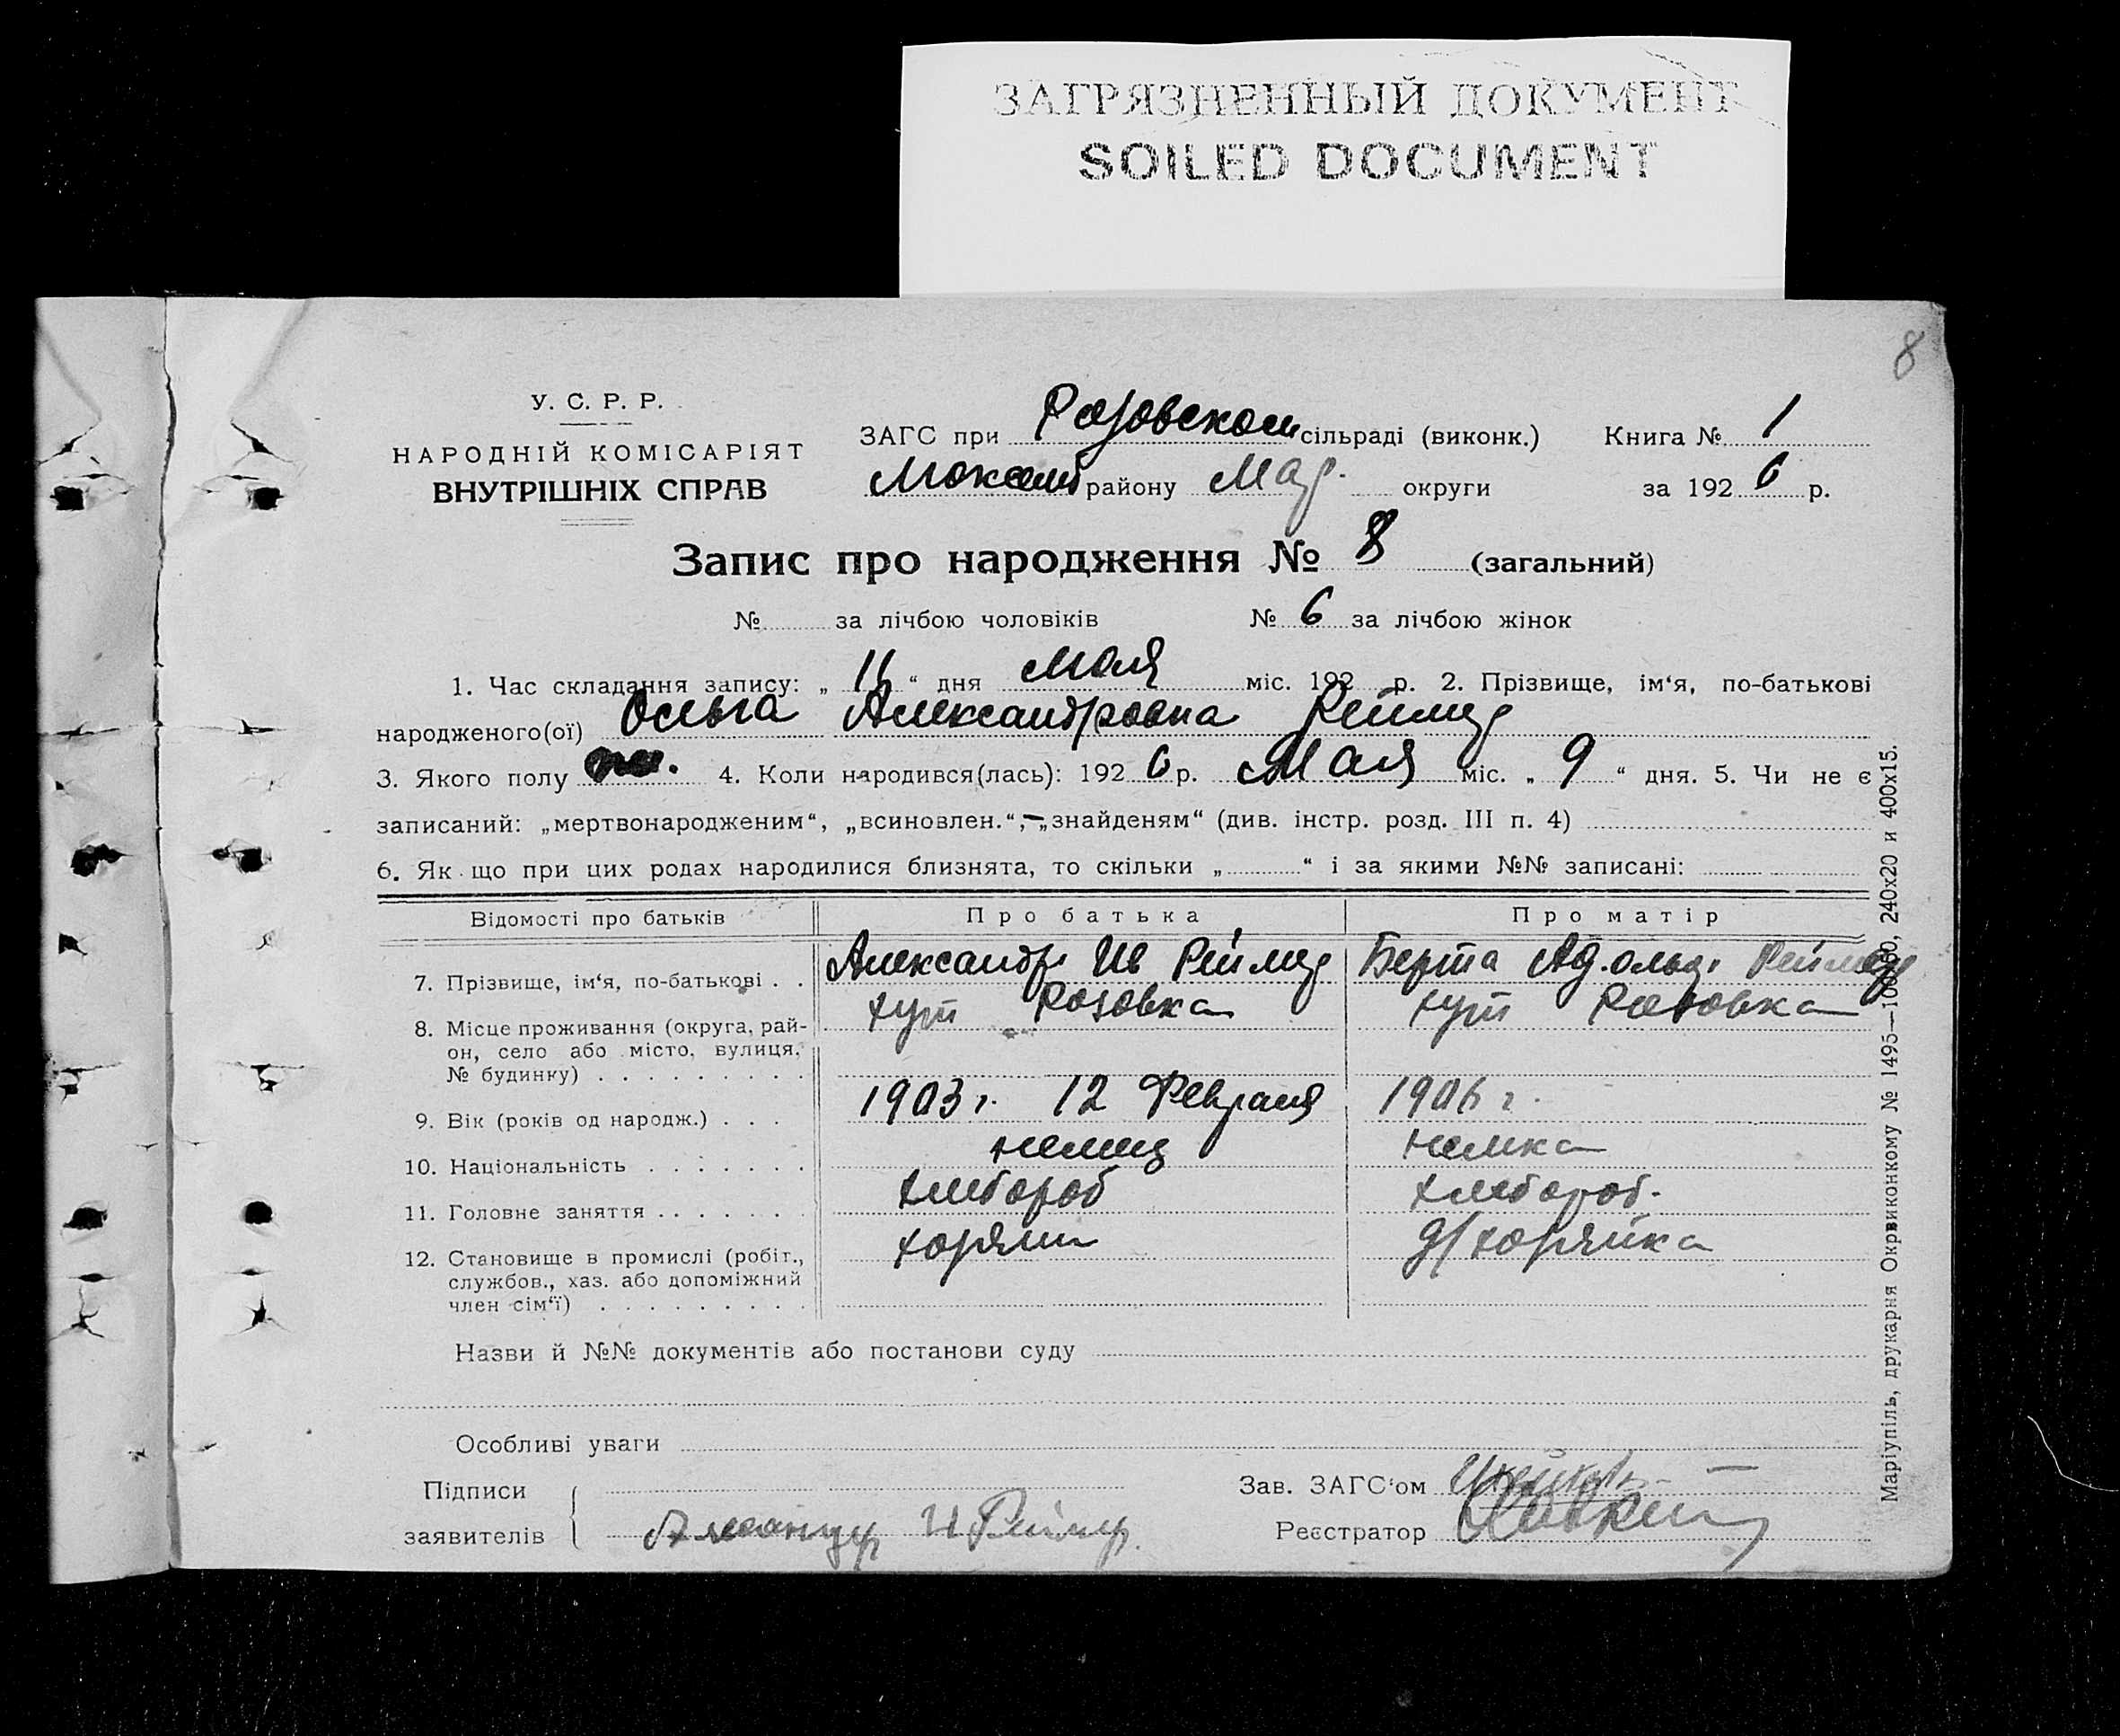 ЗАГРЯЗНЕННЫЙ ДОКУМЕНТ
SOILED DOCUMENT
8
У. С. Р. Р.
НАРОДНІЙ КОМІСАРІЯТ
ВНУТРІШНІХ СПРАВ
ЗАГС при Розовском сільраді (виконк.) Книга № 1
району Мар. округи за 1926 р.
Запис про народження № 8 (загальний)
№ за лічбою чоловіків № 6 за лічбою жінок
1. Час складання запису: „ 11 “ дня Мая міс. 192 р. 2. Прізвище, ім‘я, по-батькові
народженого(ої) Ольга Александровна Реймер
3. Якого полу 4. Коли народився(лась): 1926 р. Мая міс. „ 9 “ дня. 5. Чи не є
записаний: „мертвонародженим“, „всиновлен.“, — „знайденям“ (див. інстр. розд. III п. 4)
6. Як що при цих родах народилися близнята, то скільки „ “ і за якими №№ записані:
Відомості про батьків Про батька Про матір
7. Прізвище, ім‘я, по-батькові . . Александр Ив Реймер Берта Адольф Реймер
8. Місце проживання (округа, рай- хут Розовка хут Розовка
он, село або місто, вулиця,
№ будинку) . . . . . . . . .
9. Вік (років од народж.) . . . 1903 г. 12 Февраля 1906 г.
10. Національність . . . . . . . немец немка
11. Головне заняття . . . . . . . хлебороб хлебороб.
12. Становище в промислі (робіт., хозяин д/хозяйка
службов., хаз. або допоміжний
член сім‘ї) . . . . . . . . .
Назви й №№ документів або постанови суду
Особливі уваги
Підписи Зав. ЗАГС‘ом
заявителів И Реймер. Реєстратор
Маріупіль, друкарня Окрвиконкому № 1495—100X60, 240x20 и 400x15.